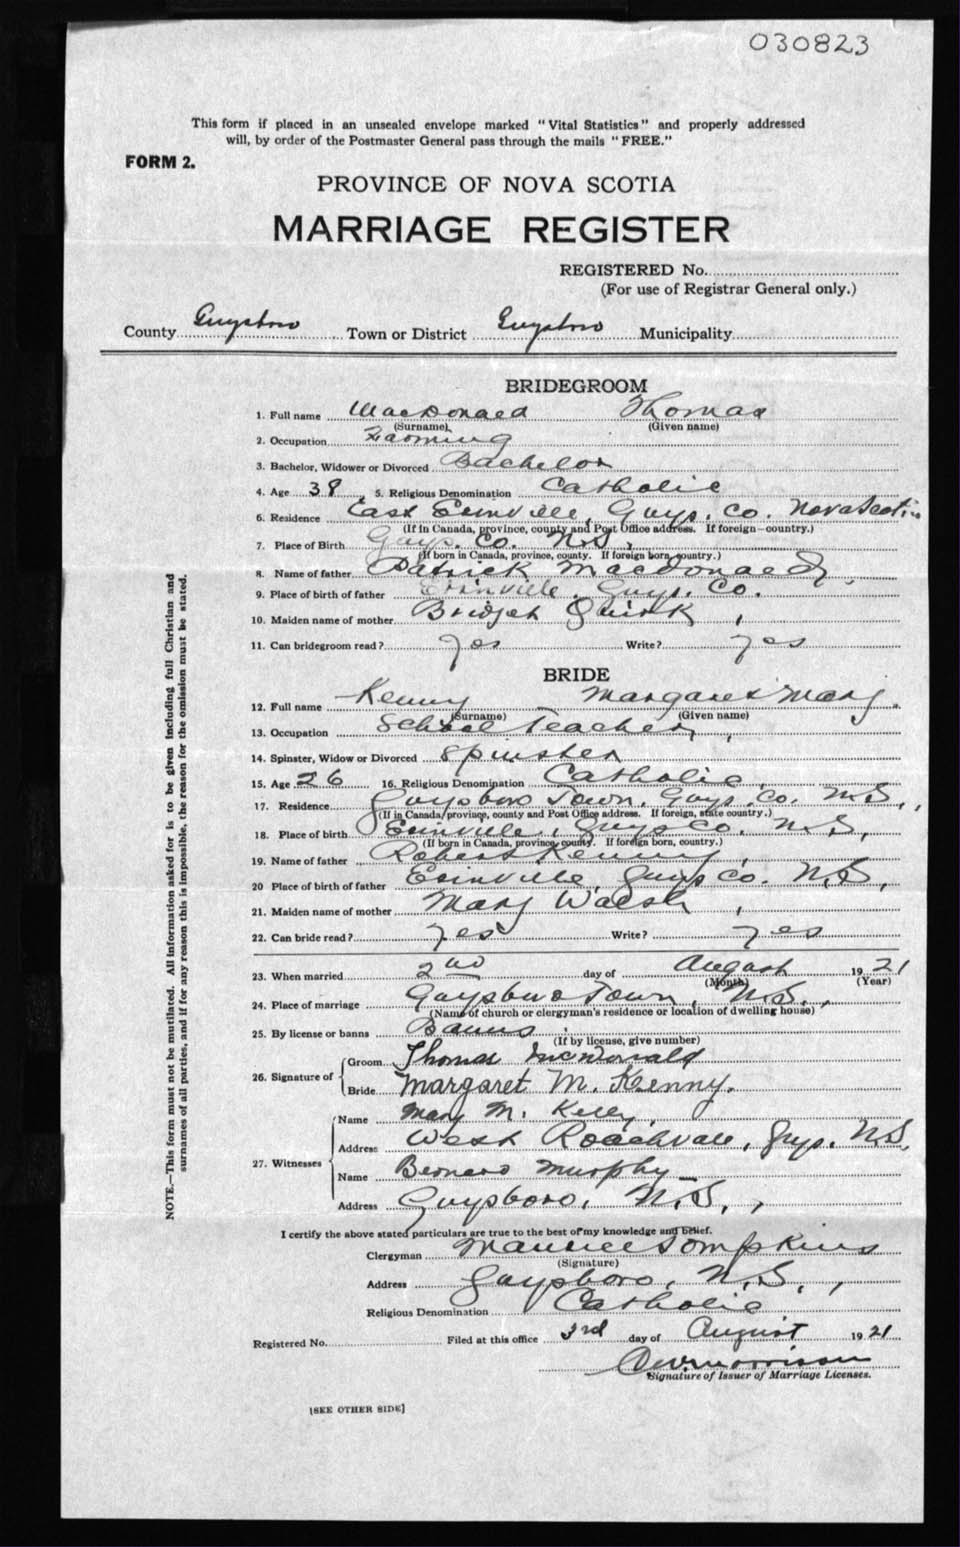 030823
This form if placed in an unsealed envelope marked "Vital Statistics" and properly addressed
will, by order of the Postmaster General pass through the mails "FREE."
FORM 2.
PROVINCE OF NOVA SCOTIA
MARRIAGE REGISTER
REGISTERED No.
(For use of Registrar General only.)
County Guysboro Town or District Guysboro Municipality
BRIDEGROOM
1. Full name MacDonald Thomas
(Surname) (Given name)
2. Occupation Farming
3. Bachelor, Widower or Divorced Bachelor
4. Age 38 5. Religious Denomination Catholic
6. Residence East Erinville, Guys. Co. Nova Scotia
(If in Canada, province, county and Post Office address. If foreign—country.)
7. Place of Birth Guys. Co. N.S.
(If born in Canada, province, county. If foreign born, country.)
8. Name of father Patrick MacDonald,
9. Place of birth of father Erinville, Guys. Co.
10. Maiden name of mother Bridget Quirk,
11. Can bridegroom read? yes Write? yes
BRIDE
12. Full name Kenny Margaret Mary
(Surname) (Given name)
13. Occupation School Teacher,
14. Spinster, Widow or Divorced Spinster
15. Age 26 16. Religious Denomination Catholic
17. Residence Guysboro Town, Guys. Co. N.S.,
(If in Canada, province, county and Post Office address. If foreign, state country.)
18. Place of birth Erinville, Guys Co. N.S,
(If born in Canada, province, county. If foreign born, country.)
19. Name of father Robert Kenny,
20 Place of birth of father Erinville, Guys Co. N.S,
21. Maiden name of mother Mary Walsh,
22. Can bride read? yes Write? yes
23. When married 2nd day of August 1921
(Month) (Year)
24. Place of marriage Guysboro Town, N.S.,
(Name of church or clergyman's residence or location of dwelling house)
25. By license or banns Banns
(If by license, give number)
26. Signature of Groom Thomas McDonald
Bride Margaret M. Kenny.
27. Witnesses Name Mary M. Kelly,
Address West Roachvale, Guys. N.S,
Name Bernard Murphy
Address Guysboro, N.S.,
I certify the above stated particulars are true to the best of my knowledge and belief.
Clergyman Maurice Tompkins
(Signature)
Address Guysboro, N.S.,
Religious Denomination Catholic
Registered No. Filed at this office 3rd day of August 1921
Morrison
Signature of Issuer of Marriage Licenses.
[SEE OTHER SIDE]
NOTE.—This form must not be mutilated. All information asked for is to be given including full Christian and
surnames of all parties, and if for any reason this is impossible, the reason for the omission must be stated.